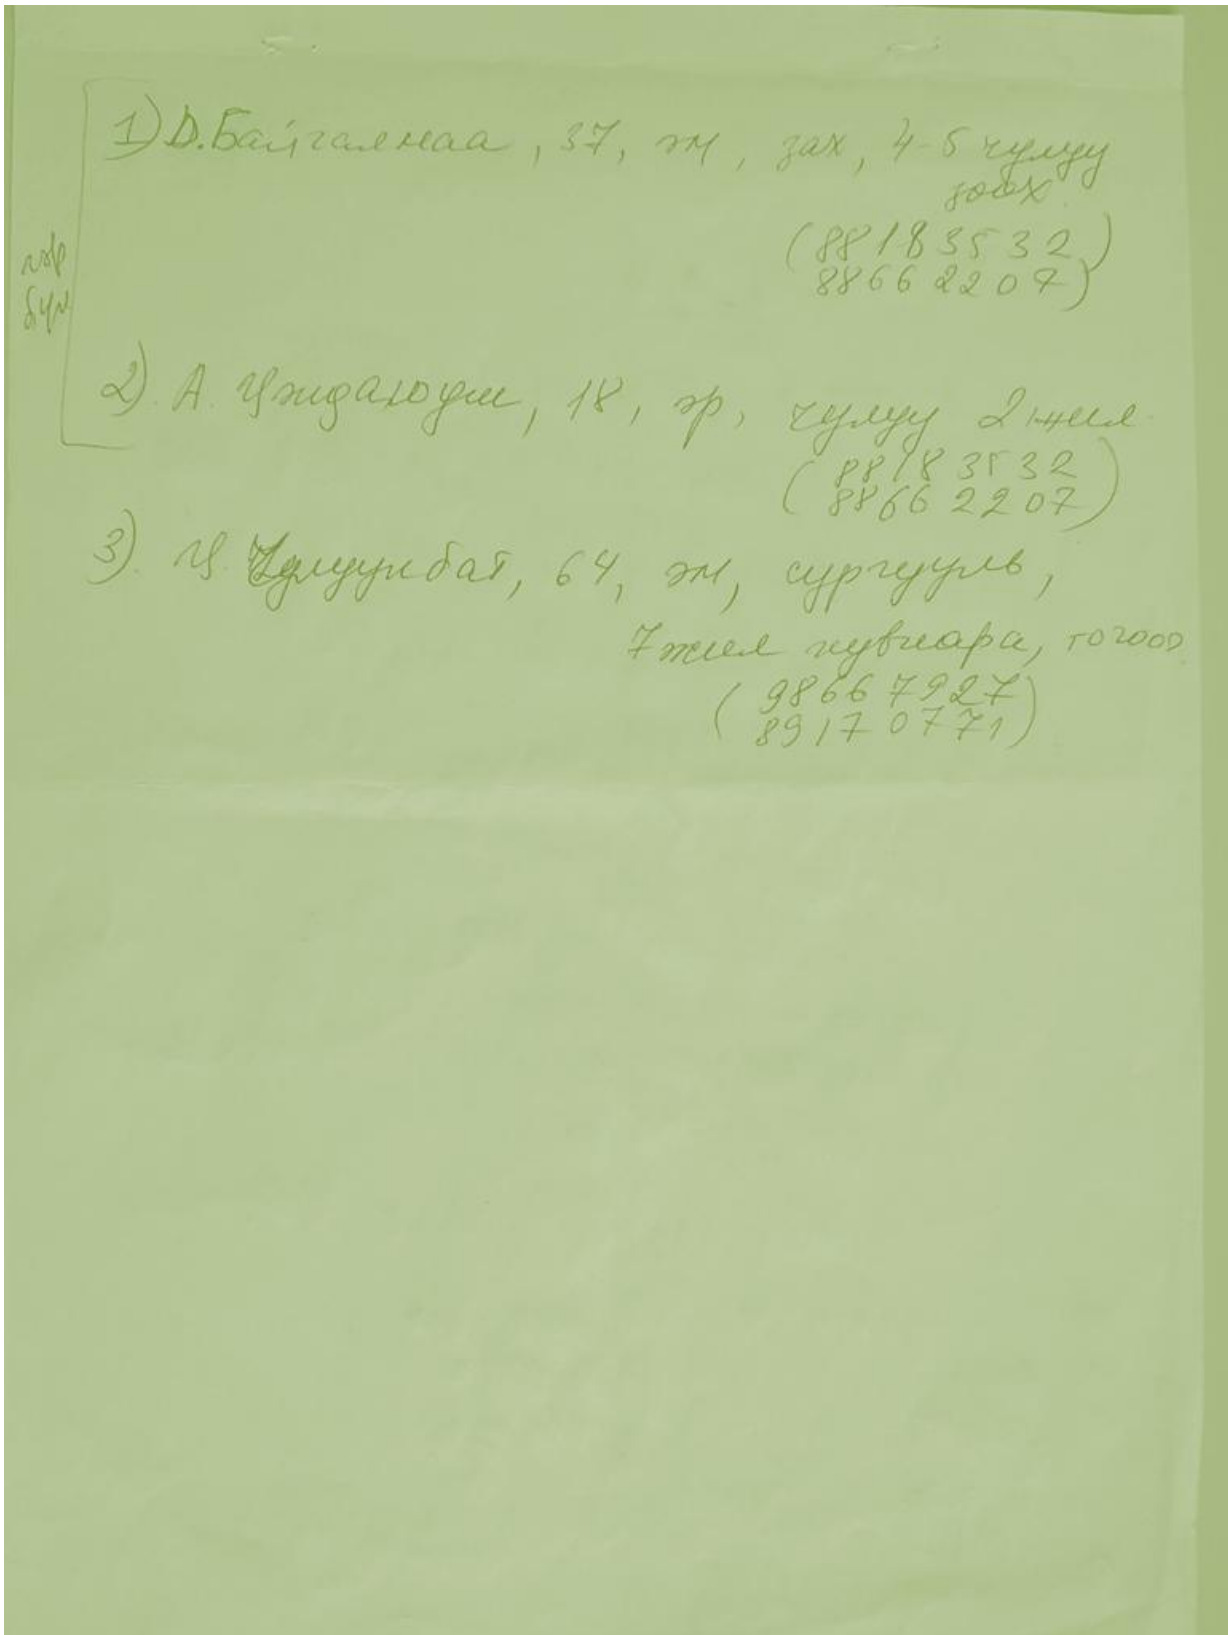 1) Д. Байгалмаа, 37, эм, зах, 4-5 чулуу
зөөх.
(88183532)
88662207)
гэр
бүл
2). А. 18, эр, чулуу 2 жил.
(88183532
88662207)
3). Ц. Чулуунбат, 64, эм, сургууль,
7 жил нувиара, тогооч
(98667927
89170771)